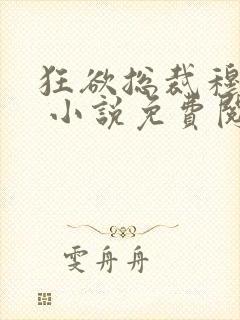 狂欲总裁穆
小說免費閱
雯舟舟